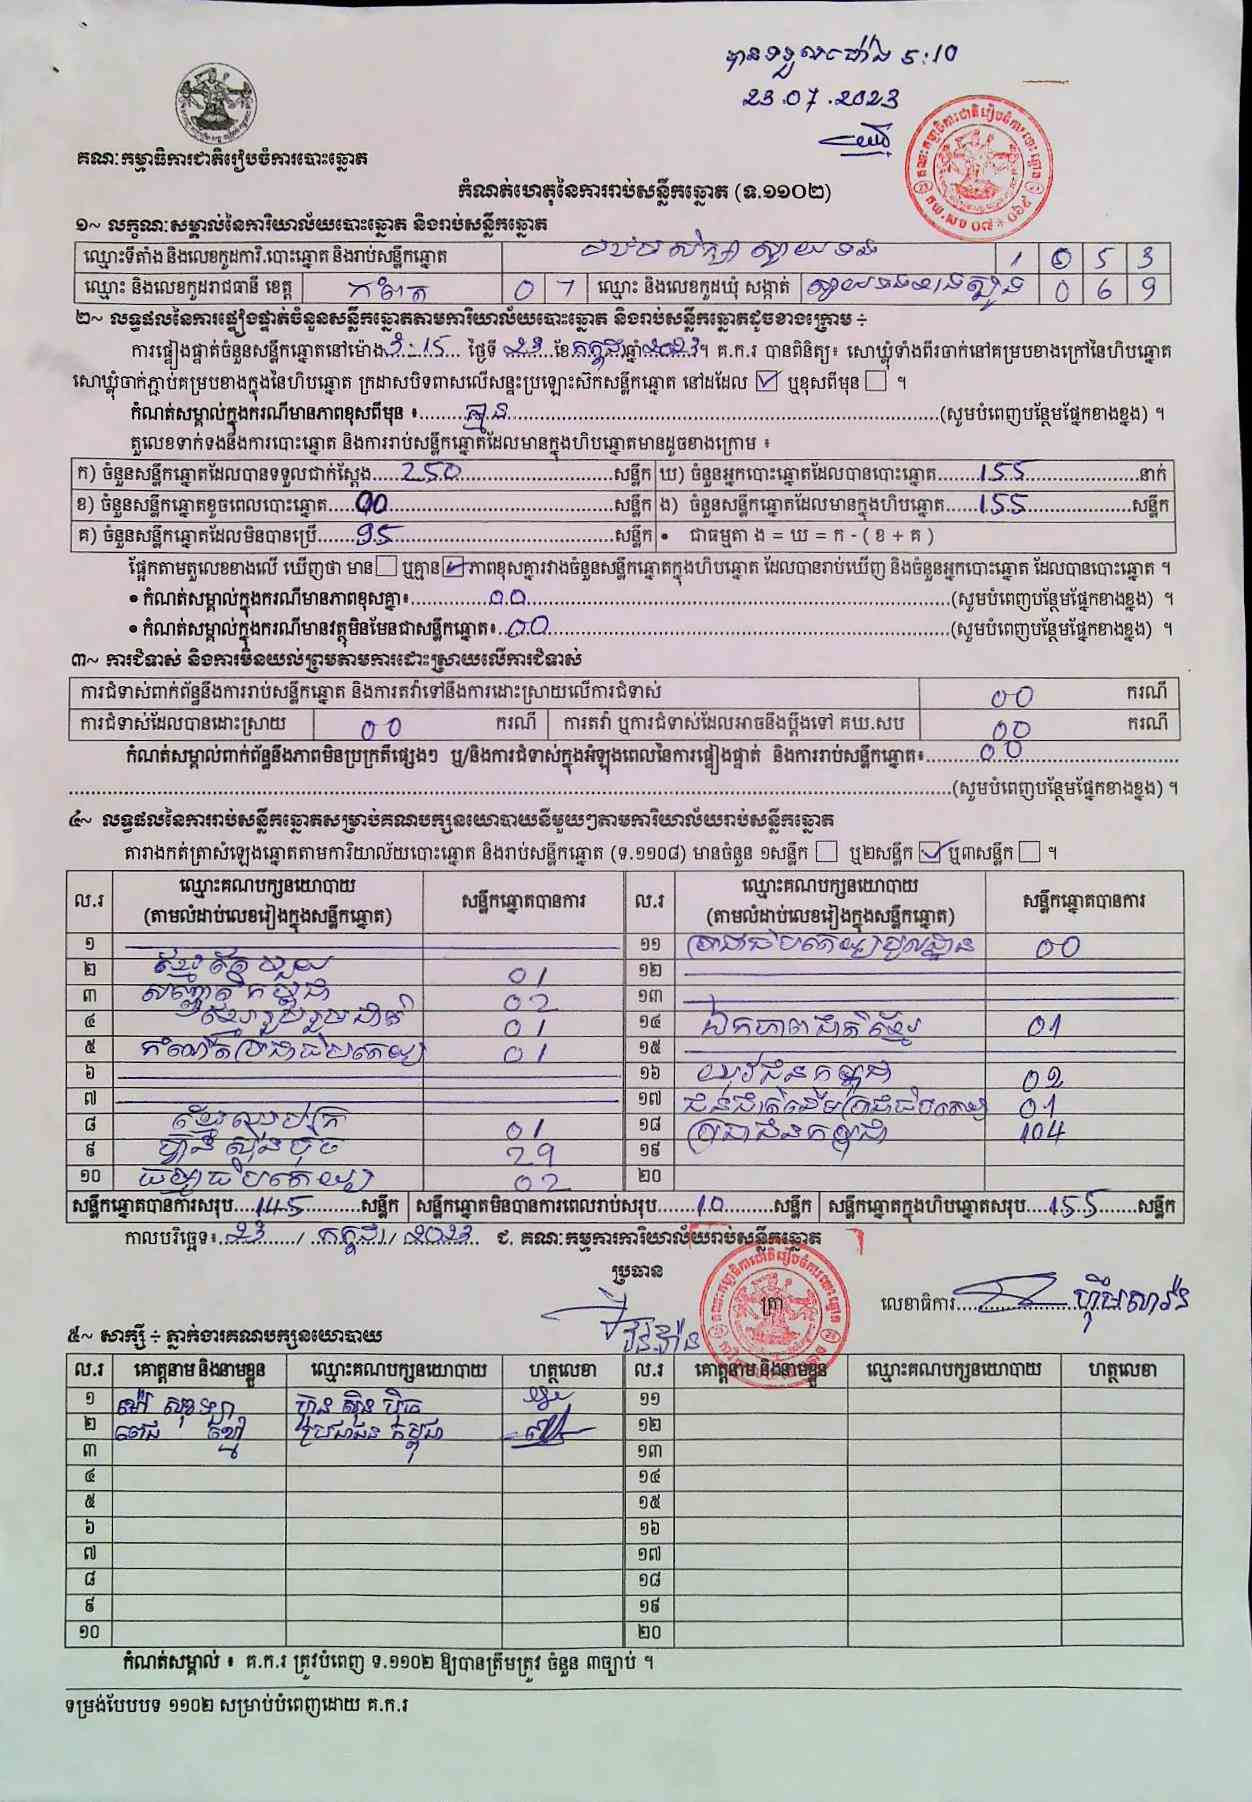 បានទទួលម៉ោង 5:10
23.07.2023
គណៈកម្មាធិការជាតិរៀបចំការបោះឆ្នោត
កំណត់ហេតុនៃការរាប់សន្លឹកឆ្នោត (ទ.១១០២)
១~ លក្ខណៈសម្គាល់នៃការិយាល័យបោះឆ្នោត និងរាប់សន្លឹកឆ្នោត
ឈ្មោះទីតាំង និងលេខកូដការិ.បោះឆ្នោត និងរាប់សន្លឹកឆ្នោត 1 0 5 3
ឈ្មោះ និងលេខកូដរាជធានី ខេត្ត កំពត 0 7 ឈ្មោះ និងលេខកូដឃុំ សង្កាត់ 0 6 9
២~ លទ្ធផលនៃការផ្ទៀងផ្ទាត់ចំនួនសន្លឹកឆ្នោតតាមការិយាល័យបោះឆ្នោត និងរាប់សន្លឹកឆ្នោតដូចខាងក្រោម ÷
ការផ្ទៀងផ្ទាត់ចំនួនសន្លឹកឆ្នោតនៅម៉ោង 3:15 ថ្ងៃទី 23 ខែ កក្កដា ឆ្នាំ 2023 ។ គ.ក.រ បានពិនិត្យ៖ សោឃ្លុំទាំងពីរចាក់នៅគម្របខាងក្រៅនៃហិបឆ្នោត
សោឃ្លុំចាក់ភ្ជាប់គម្របខាងក្នុងនៃហិបឆ្នោត ក្រដាសបិទពាសលើសន្ទះប្រឡោះស៊កសន្លឹកឆ្នោត នៅដដែល ☑ ឬខុសពីមុន ☐ ។
កំណត់សម្គាល់ក្នុងករណីមានភាពខុសពីមុន ៖ គ្មាន (សូមបំពេញបន្ថែមផ្នែកខាងខ្នង) ។
តួលេខទាក់ទងនឹងការបោះឆ្នោត និងការរាប់សន្លឹកឆ្នោតដែលមានក្នុងហិបឆ្នោតមានដូចខាងក្រោម ៖
ក) ចំនួនសន្លឹកឆ្នោតដែលបានទទួលជាក់ស្ដែង 250 សន្លឹក ឃ) ចំនួនអ្នកបោះឆ្នោតដែលបានបោះឆ្នោត 155 នាក់
ខ) ចំនួនសន្លឹកឆ្នោតខូចពេលបោះឆ្នោត 00 សន្លឹក ង) ចំនួនសន្លឹកឆ្នោតដែលមានក្នុងហិបឆ្នោត 155 សន្លឹក
គ) ចំនួនសន្លឹកឆ្នោតដែលមិនបានប្រើ 95 សន្លឹក • ជាធម្មតា ង = ឃ = ក - ( ខ + គ )
ផ្អែកតាមតួលេខខាងលើ ឃើញថា មាន ☐ ឬគ្មាន ☑ ភាពខុសគ្នារវាងចំនួនសន្លឹកឆ្នោតក្នុងហិបឆ្នោត ដែលបានរាប់ឃើញ និងចំនួនអ្នកបោះឆ្នោត ដែលបានបោះឆ្នោត ។
• កំណត់សម្គាល់ក្នុងករណីមានភាពខុសគ្នា៖ 00 (សូមបំពេញបន្ថែមផ្នែកខាងខ្នង) ។
• កំណត់សម្គាល់ក្នុងករណីមានវត្ថុមិនមែនជាសន្លឹកឆ្នោត៖ 00 (សូមបំពេញបន្ថែមផ្នែកខាងខ្នង) ។
៣~ ការជំទាស់ និងការមិនយល់ព្រមតាមការដោះស្រាយលើការជំទាស់
ការជំទាស់ពាក់ព័ន្ធនឹងការរាប់សន្លឹកឆ្នោត និងការតវ៉ាទៅនឹងការដោះស្រាយលើការជំទាស់ 00 ករណី
ការជំទាស់ដែលបានដោះស្រាយ 00 ករណី ការតវ៉ា ឬការជំទាស់ដែលអាចនឹងប្ដឹងទៅ គឃ.សប 00 ករណី
កំណត់សម្គាល់ពាក់ព័ន្ធនឹងភាពមិនប្រក្រតីផ្សេងៗ ឬ/និងការជំទាស់ក្នុងអំឡុងពេលនៃការផ្ទៀងផ្ទាត់ និងការរាប់សន្លឹកឆ្នោត៖ 00
(សូមបំពេញបន្ថែមផ្នែកខាងខ្នង) ។
៤~ លទ្ធផលនៃការរាប់សន្លឹកឆ្នោតសម្រាប់គណបក្សនយោបាយនីមួយៗតាមការិយាល័យរាប់សន្លឹកឆ្នោត
តារាងកត់ត្រាសំឡេងឆ្នោតតាមការិយាល័យបោះឆ្នោត និងរាប់សន្លឹកឆ្នោត (ទ.១១០៨) មានចំនួន ១សន្លឹក ☐ ឬ២សន្លឹក ☑ ឬ៣សន្លឹក ☐ ។
ល.រ ឈ្មោះគណបក្សនយោបាយ (តាមលំដាប់លេខរៀងក្នុងសន្លឹកឆ្នោត) សន្លឹកឆ្នោតបានការ ល.រ ឈ្មោះគណបក្សនយោបាយ (តាមលំដាប់លេខរៀងក្នុងសន្លឹកឆ្នោត) សន្លឹកឆ្នោតបានការ
១ ១១ ប្រជាធិបតេយ្យមូលដ្ឋាន 00
២ ខ្មែរតែមួយ 01 ១២
៣ សញ្ជាតិកម្ពុជា 02 ១៣
៤ ខ្មែររួបរួមជាតិ 01 ១៤ ឯកភាពជាតិខ្មែរ 01
៥ កំណើតប្រជាធិបតេយ្យ 01 ១៥
៦ ១៦ យុវជនកម្ពុជា 02
៧ ១៧ ជនជាតិដើមប្រជាធិបតេយ្យ 01
៨ ខ្មែរឈប់ក្រ 01 ១៨ ប្រជាជនកម្ពុជា 104
៩ ហ្វ៊ុនស៊ិនប៉ិច 29 ១៩
១០ ធម្មាធិបតេយ្យ 02 ២០
សន្លឹកឆ្នោតបានការសរុប 145 សន្លឹក សន្លឹកឆ្នោតមិនបានការពេលរាប់សរុប 10 សន្លឹក សន្លឹកឆ្នោតក្នុងហិបឆ្នោតសរុប 155 សន្លឹក
កាលបរិច្ឆេទ៖ 23 / កក្កដា / 2023 ជ. គណៈកម្មការការិយាល័យរាប់សន្លឹកឆ្នោត
ប្រធាន
ត្រា
លេខាធិការ
៥~ សាក្សី ÷ ភ្នាក់ងារគណបក្សនយោបាយ
ល.រ គោត្តនាម និងនាមខ្លួន ឈ្មោះគណបក្សនយោបាយ ហត្ថលេខា ល.រ គោត្តនាម និងនាមខ្លួន ឈ្មោះគណបក្សនយោបាយ ហត្ថលេខា
១ ហ្វ៊ុន ស៊ិន ប៉ិច ១១
២ ប្រជាជន កម្ពុជា ១២
៣ ១៣
៤ ១៤
៥ ១៥
៦ ១៦
៧ ១៧
៨ ១៨
៩ ១៩
១០ ២០
កំណត់សម្គាល់ ៖ គ.ក.រ ត្រូវបំពេញ ទ.១១០២ ឱ្យបានត្រឹមត្រូវ ចំនួន ៣ច្បាប់ ។
ទម្រង់បែបបទ ១១០២ សម្រាប់បំពេញដោយ គ.ក.រ